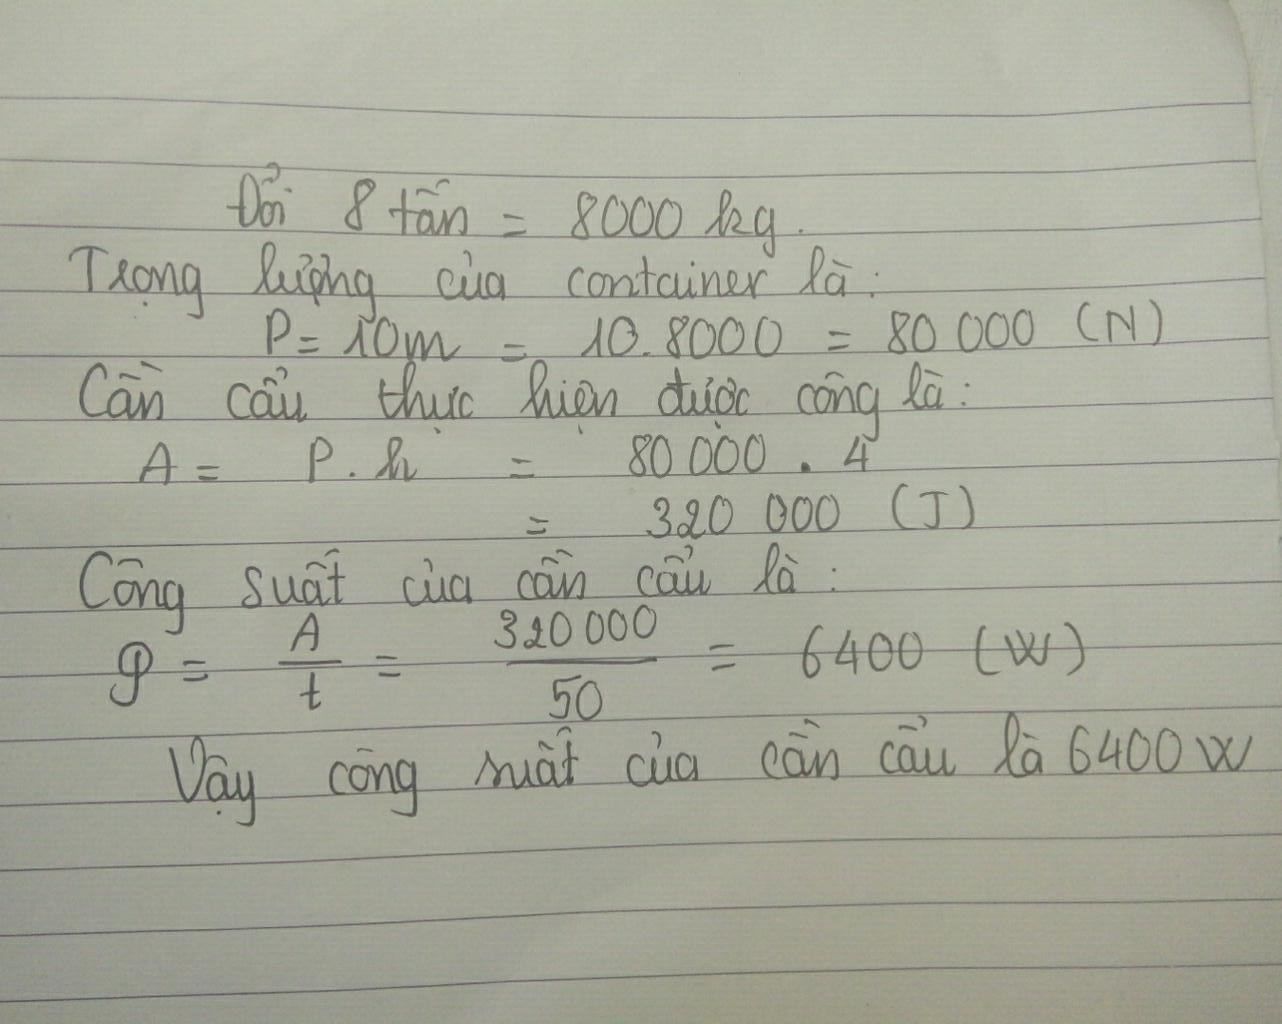 Đổi 8 tấn = 8000 kg.
Trọng lượng của container là:
P = 10m = 10.8000 = 80 000 (N)
Cần cẩu thực hiện được công là:
A = P . h = 80 000 . 4
= 320 000 (J)
Công suất của cần cẩu là:
𝒫 = A/t = 320 000/50 = 6400 (W)
Vậy công suất của cần cẩu là 6400 W